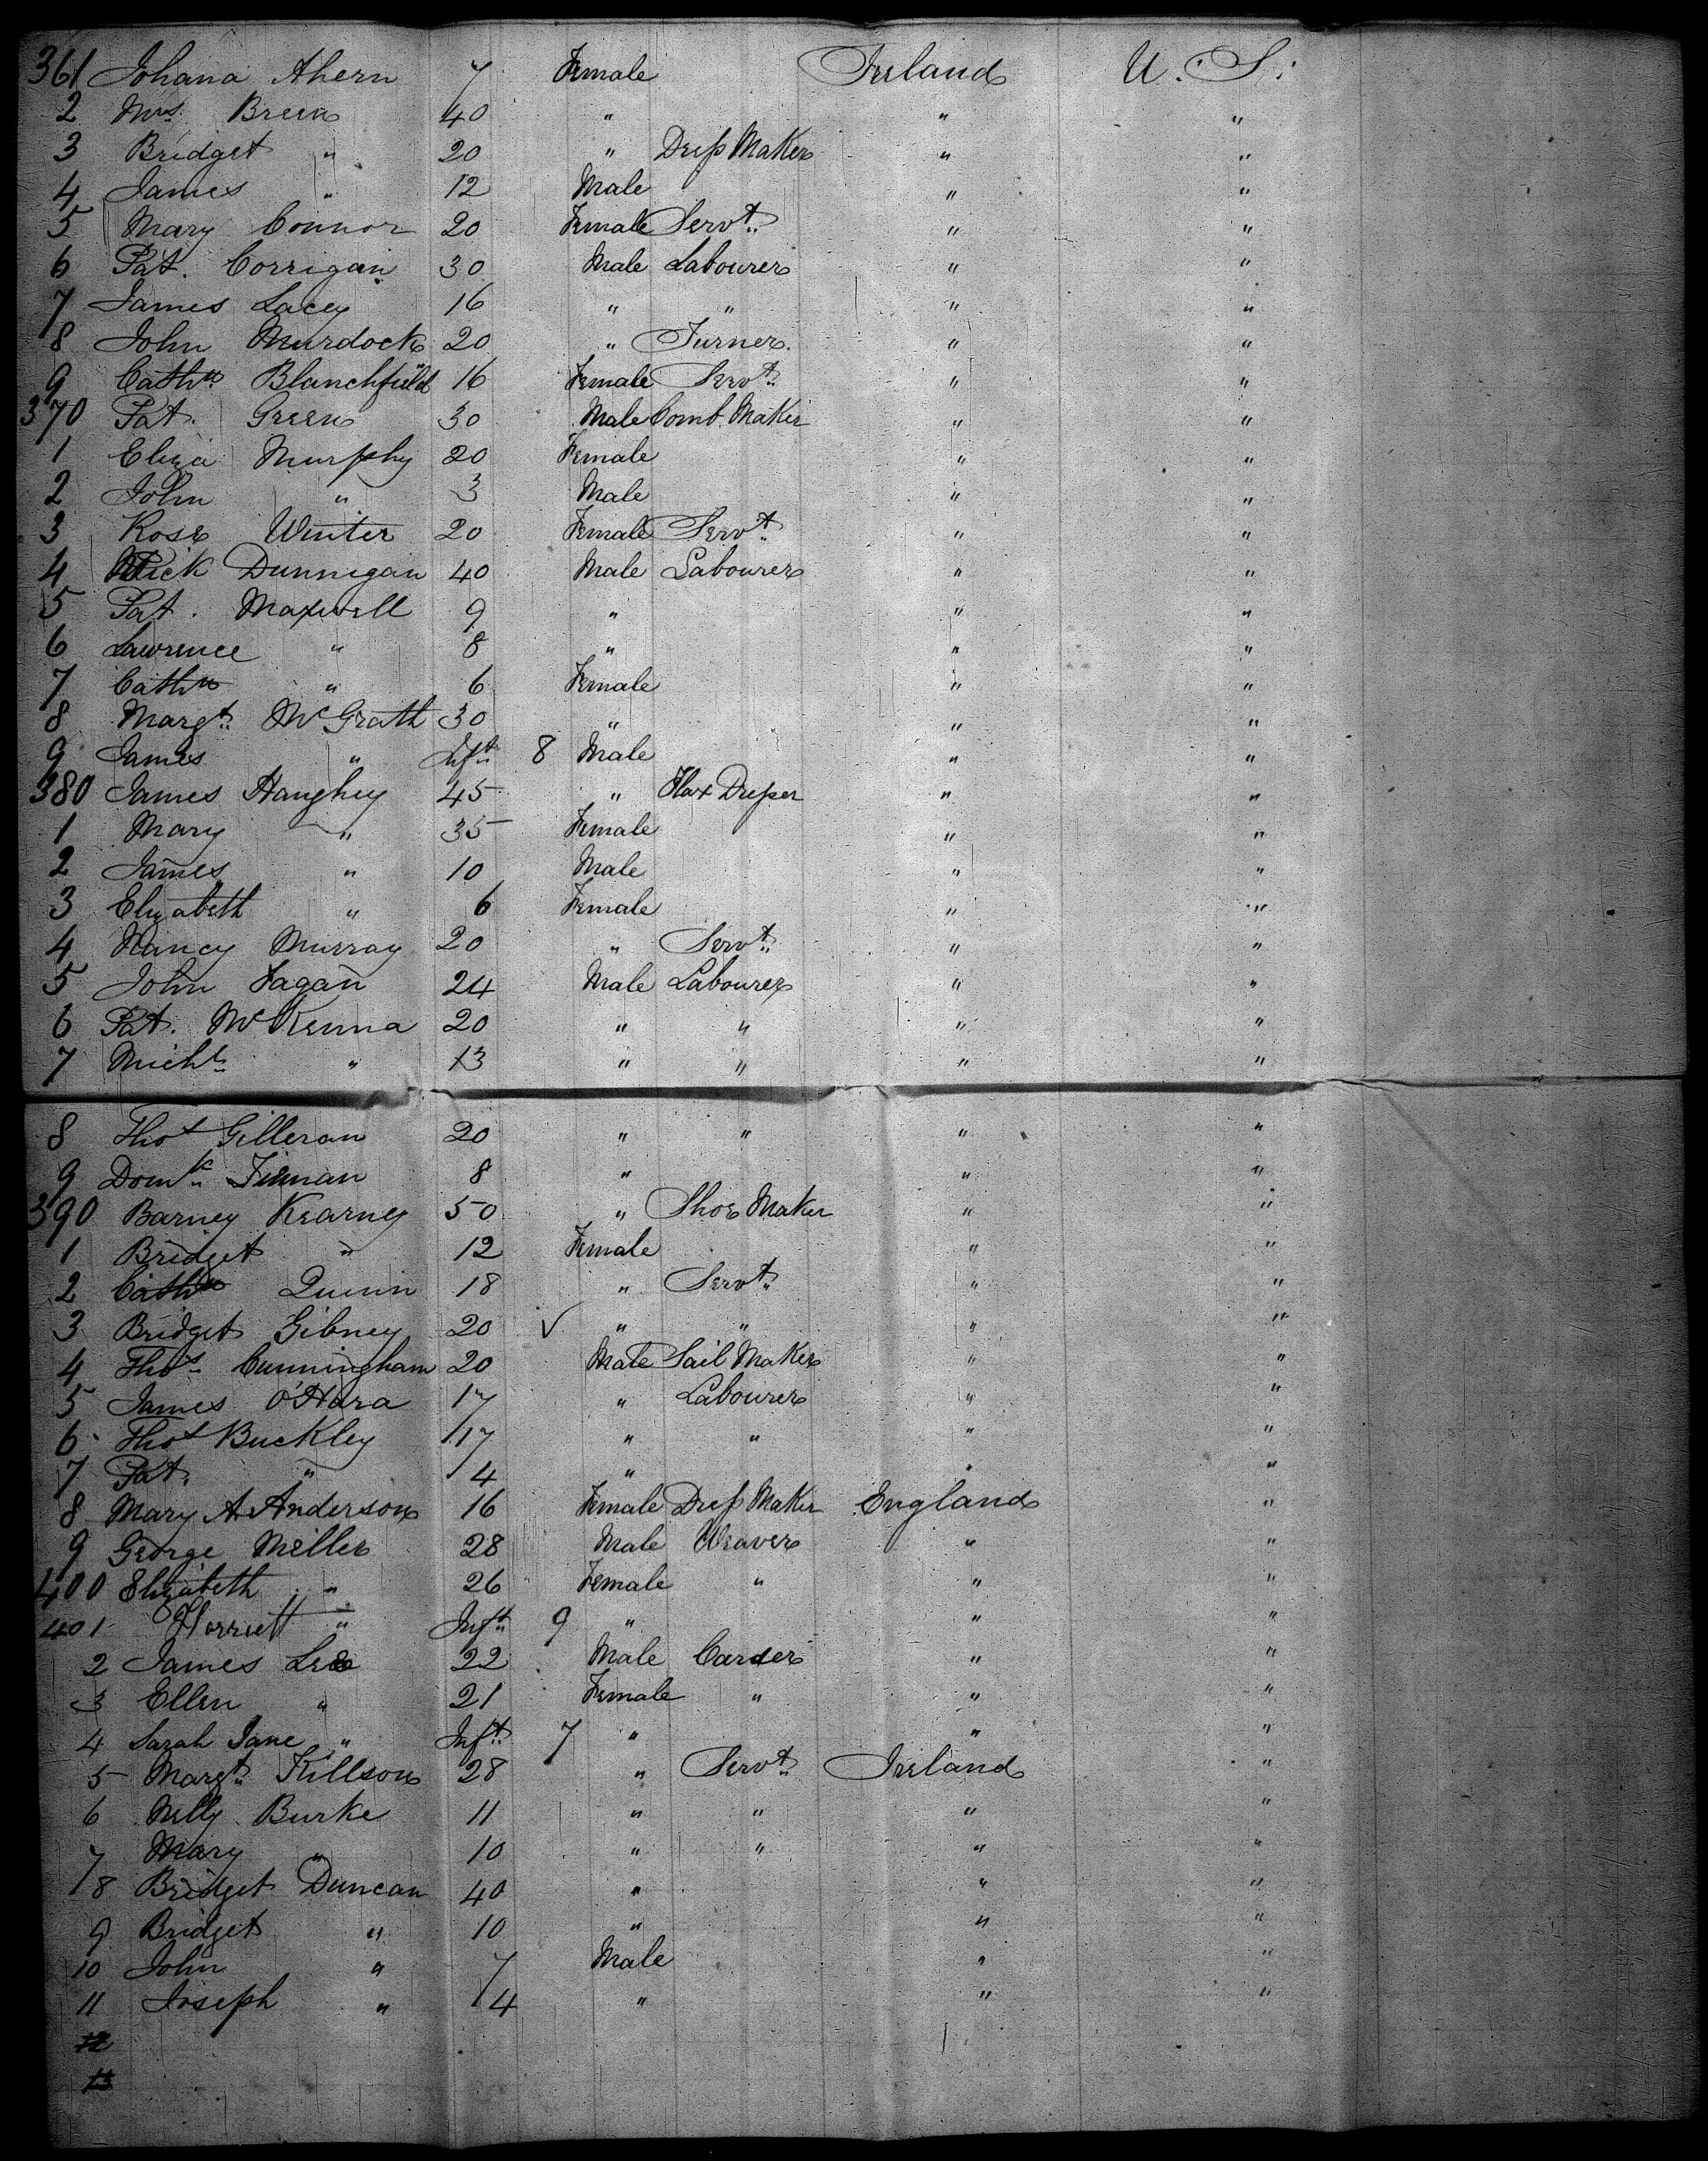 361 Johana Ahern 7 Female Ireland U. S.
2 Mrs. Breen 40 " " "
3 Bridget " 20 " Dress Maker " "
4 James " 12 Male " "
5 Mary Connor 20 Female Servt. " "
6 Pat. Corrigan 30 Male Labourer " "
7 James Lacey 16 " " " "
8 John Murdock 20 " Turner. " "
9 Cathn Blanchfield 16 Female Servt. " "
370 Pat. Green 30 Male Comb Maker " "
1 Eliza Murphy 20 Female " "
2 John " 3 Male " "
3 Rose Winter 20 Female Servt. " "
4 Mick Dunnigan 40 Male Labourer " "
5 Pat. Maxwell 9 " " "
6 Lawrence " 8 " " "
7 Cathn " 6 Female " "
8 Margt. McGrath 30 " " "
9 James " Inft. 8 Male " "
380 James Haughey 45 " Flax Dresser " "
1 Mary " 35 Female " "
2 James " 10 Male " "
3 Elizabeth " 6 Female " "
4 Nancy Murray 20 " Servt. " "
5 John Fagan 24 Male Labourer " "
6 Pat. McKenna 20 " " " "
7 Michl. " 13 " " " "
8 Thos Gilleran 20 " " " "
9 Domk. 8 " " "
390 Barney Kearney 50 " Shoe Maker " "
1 Bridget " 12 Female " "
2 Cathn Quinn 18 " Servt. " "
3 Bridget Gibney 20 ✓ " " " "
4 Thos. Cunningham 20 Male Sail Maker " "
5 James O'Hara 17 " Labourer " "
6 Thos Buckley 17 " " " "
7 Pat. " 4 " " "
8 Mary A. Anderson 16 Female Dress Maker England "
9 George Miller 28 Male Weaver " "
400 Elizabeth " 26 Female " " "
401 Harriett " Inft. 9 " " "
2 James Lee 22 Male Carder " "
3 Ellen " 21 Female " " "
4 Sarah Jane " Inft. 7 " " "
5 Margt. Killson 28 " Servt. Ireland "
6 Nelly Burke 11 " " " "
7 Mary " 10 " " " "
8 Bridget Duncan 40 " " "
9 Bridget " 10 " " "
10 John " 7 Male " "
11 Joseph " 4 " " "
12
13